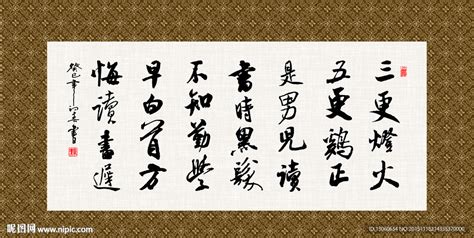 三更燈火
五更鷄正
是男兒讀
書時黑髮
不知勤學
早白首方
悔讀書遲
癸巳年
昵图网 www.nipic.com